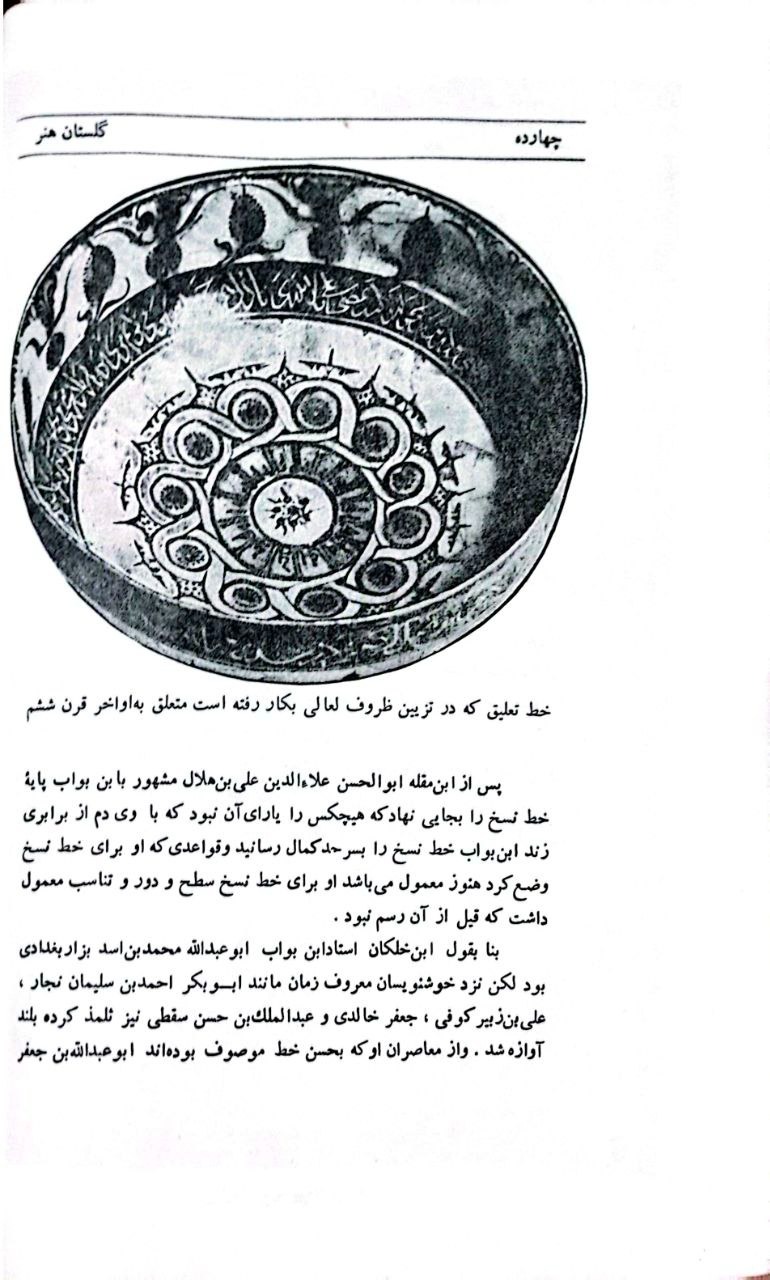 چهارده
گلستان هنر
خط تعلیق که در تزیین ظروف لعالی بکار رفته است متعلق به‌اواخر قرن ششم
پس از ابن‌مقله ابوالحسن علاءالدین علی‌بن‌هلال مشهور بابن بواب پایهٔ
خط نسخ را بجایی نهادکه هیچکس را یارای‌آن نبود که با وی دم از برابری
زند ابن‌بواب خط نسخ را بسرحدکمال رسانید وقواعدی‌که او برای خط نسخ
وضع‌کرد هنوز معمول می‌باشد او برای خط نسخ سطح و دور و تناسب معمول
داشت که قبل از آن رسم نبود .
بنا بقول ابن‌خلکان استادابن بواب ابوعبدالله محمدبن‌اسد بزاربغدادی
بود لکن نزد خوشنویسان معروف زمان مانند ابوبکر احمدبن سلیمان نجار ،
علی‌بن‌زبیرکوفی ، جعفر خالدی و عبدالملك‌بن حسن سقطی نیز تلمذ کرده بلند
آوازه شد . واز معاصران اوکه بحسن خط موصوف بوده‌اند ابوعبدالله‌بن جعفر